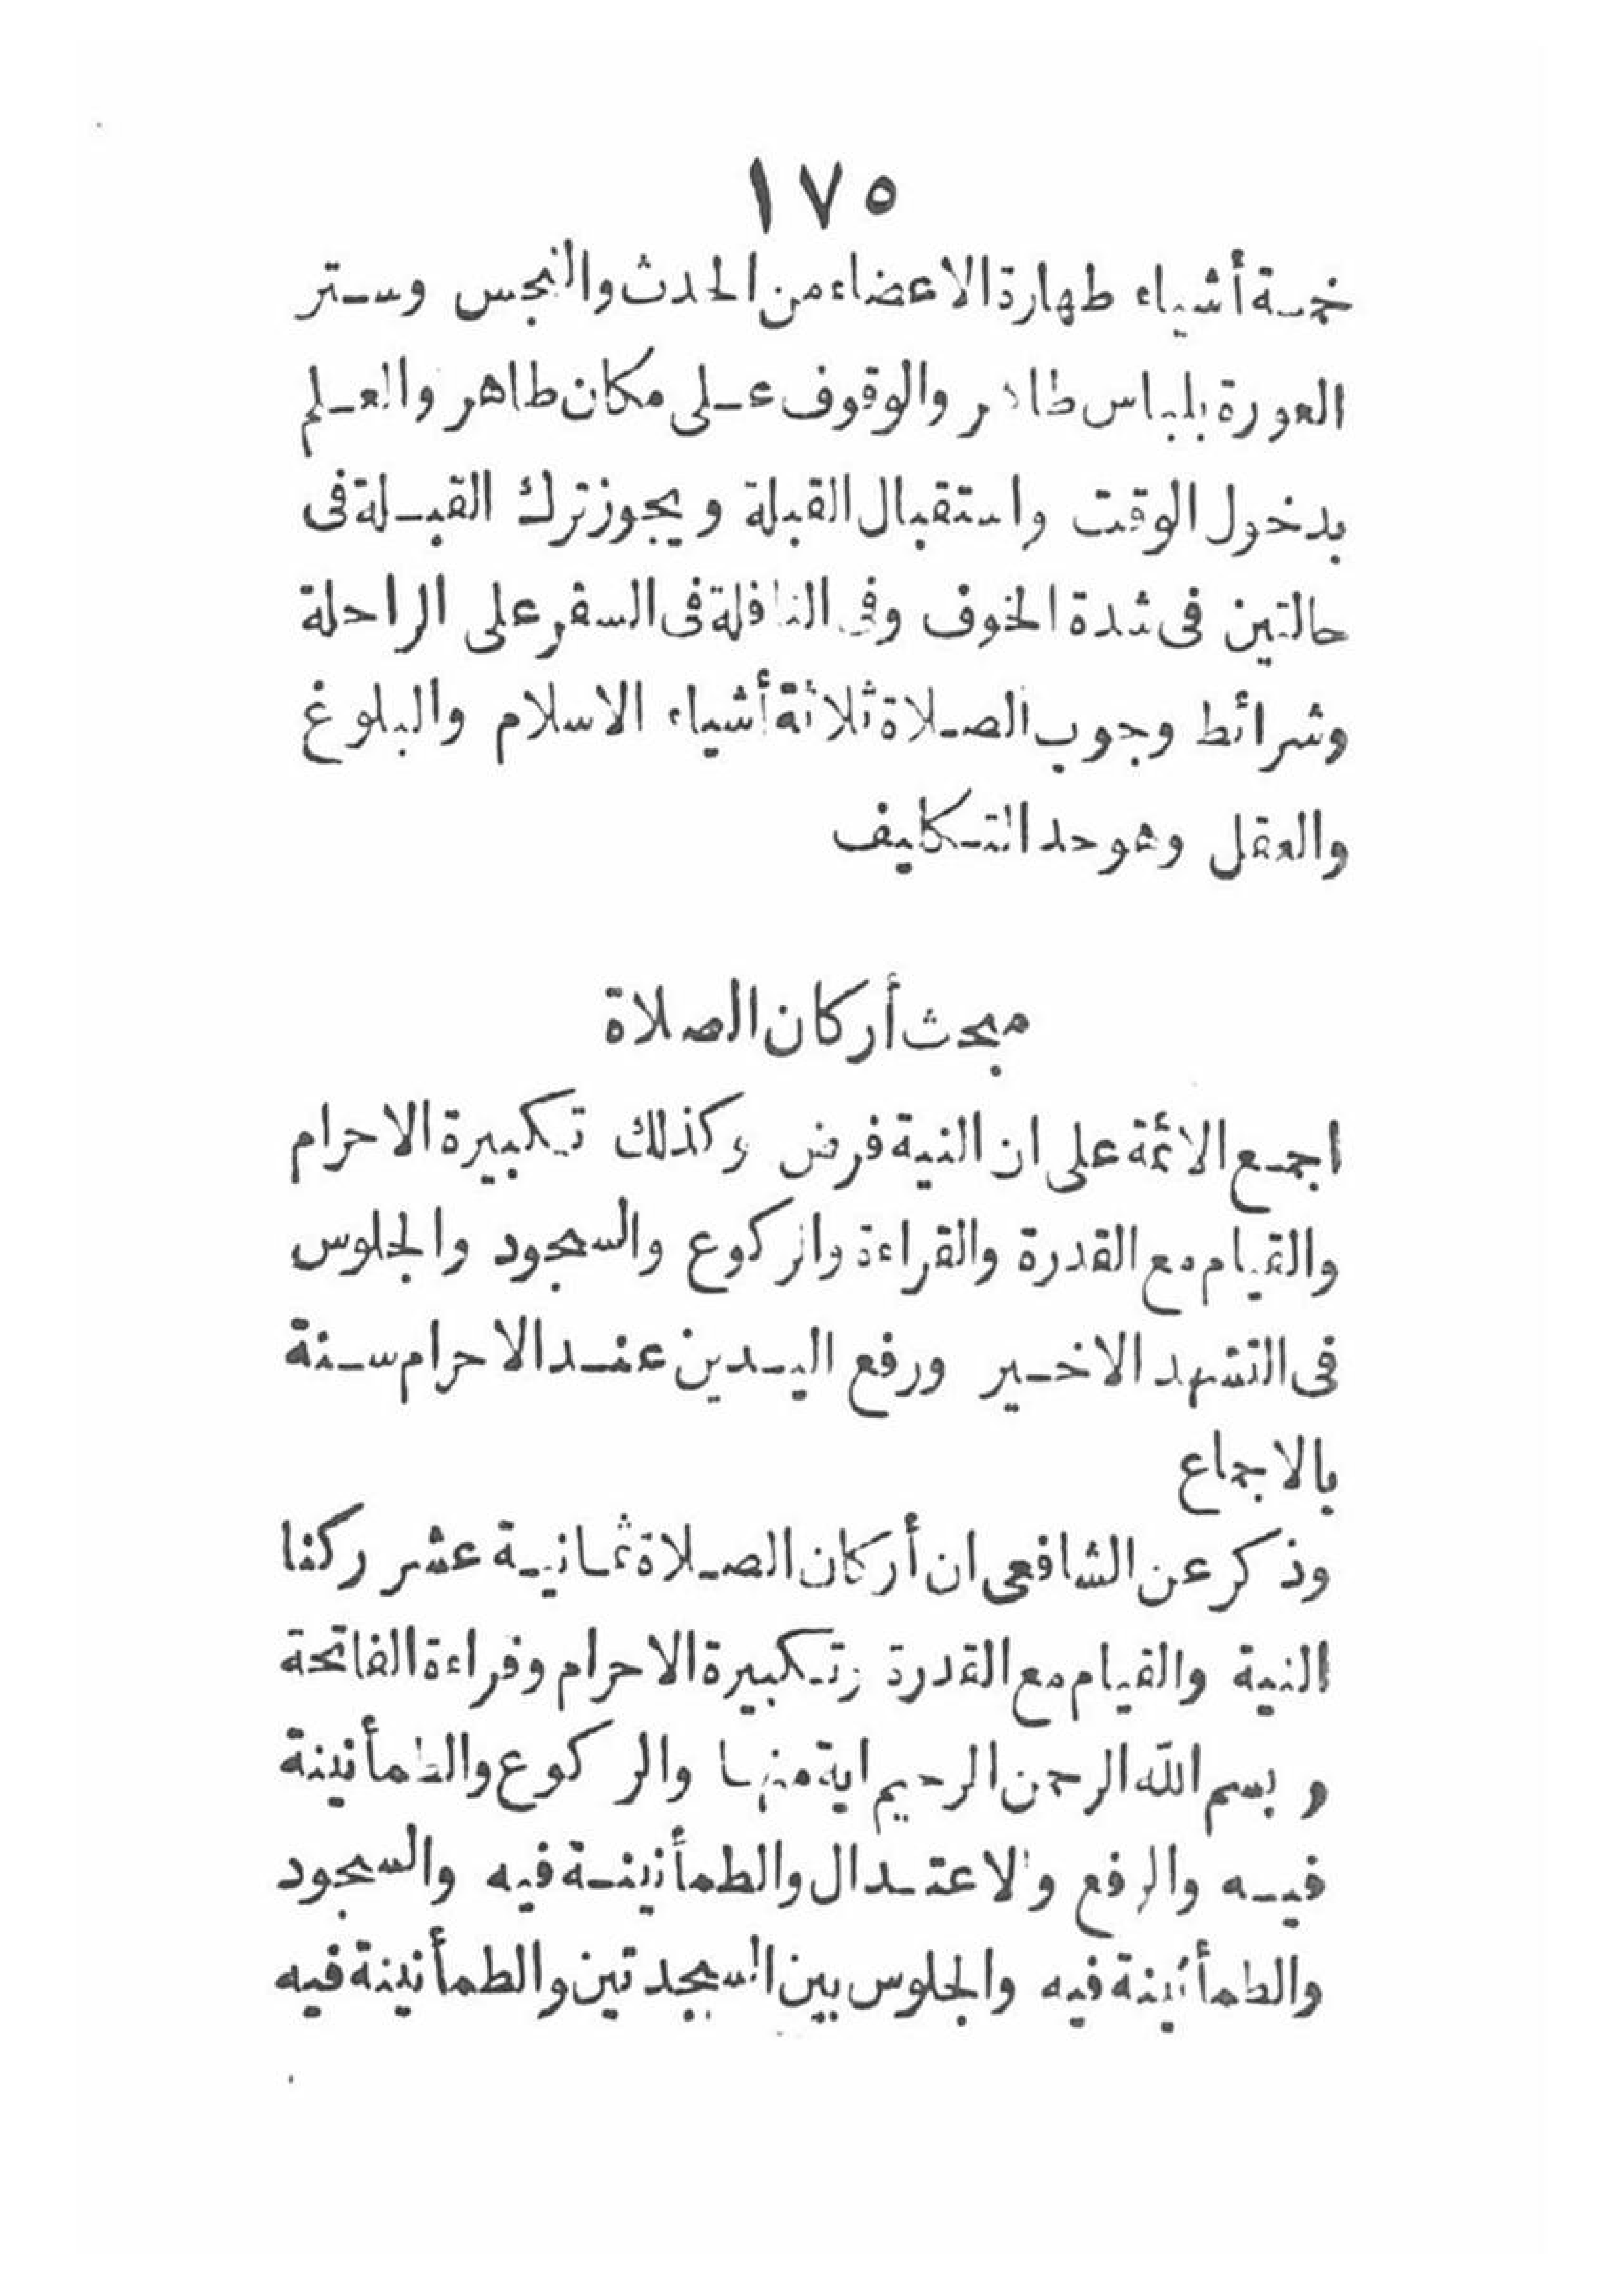 ١٧٥
خمسة أشياء طهارة الاعضاء من الحدث والنجس وستر
العورة بلباس طاهر والوقوف على مكان طاهر والعلم
بدخول الوقت واستقبال القبلة ويجوز ترك القبلة فى
حالتين فى شدة الخوف وفى النافلة فى السفر على الراحلة
وشرائط وجوب الصلاة ثلاثة أشياء الاسلام والبلوغ
والعقل وهو حد التكليف
مبحث أركان الصلاة
اجمع الائمة على ان النية فرض وكذلك تكبيرة الاحرام
والقيام مع القدرة والقراءة والركوع والسجود والجلوس
فى التشهد الاخير ورفع اليدين عند الاحرام سنة
بالاجماع
وذكر عن الشافعى ان أركان الصلاة ثمانية عشر ركنا
النية والقيام مع القدرة وتكبيرة الاحرام وقراءة الفاتحة
وبسم الله الرحمن الرحيم اية منها والركوع والطمأنينة
فيه والرفع والاعتدال والطمأنينة فيه والسجود
والطمأنينة فيه والجلوس بين السجدتين والطمأنينة فيه